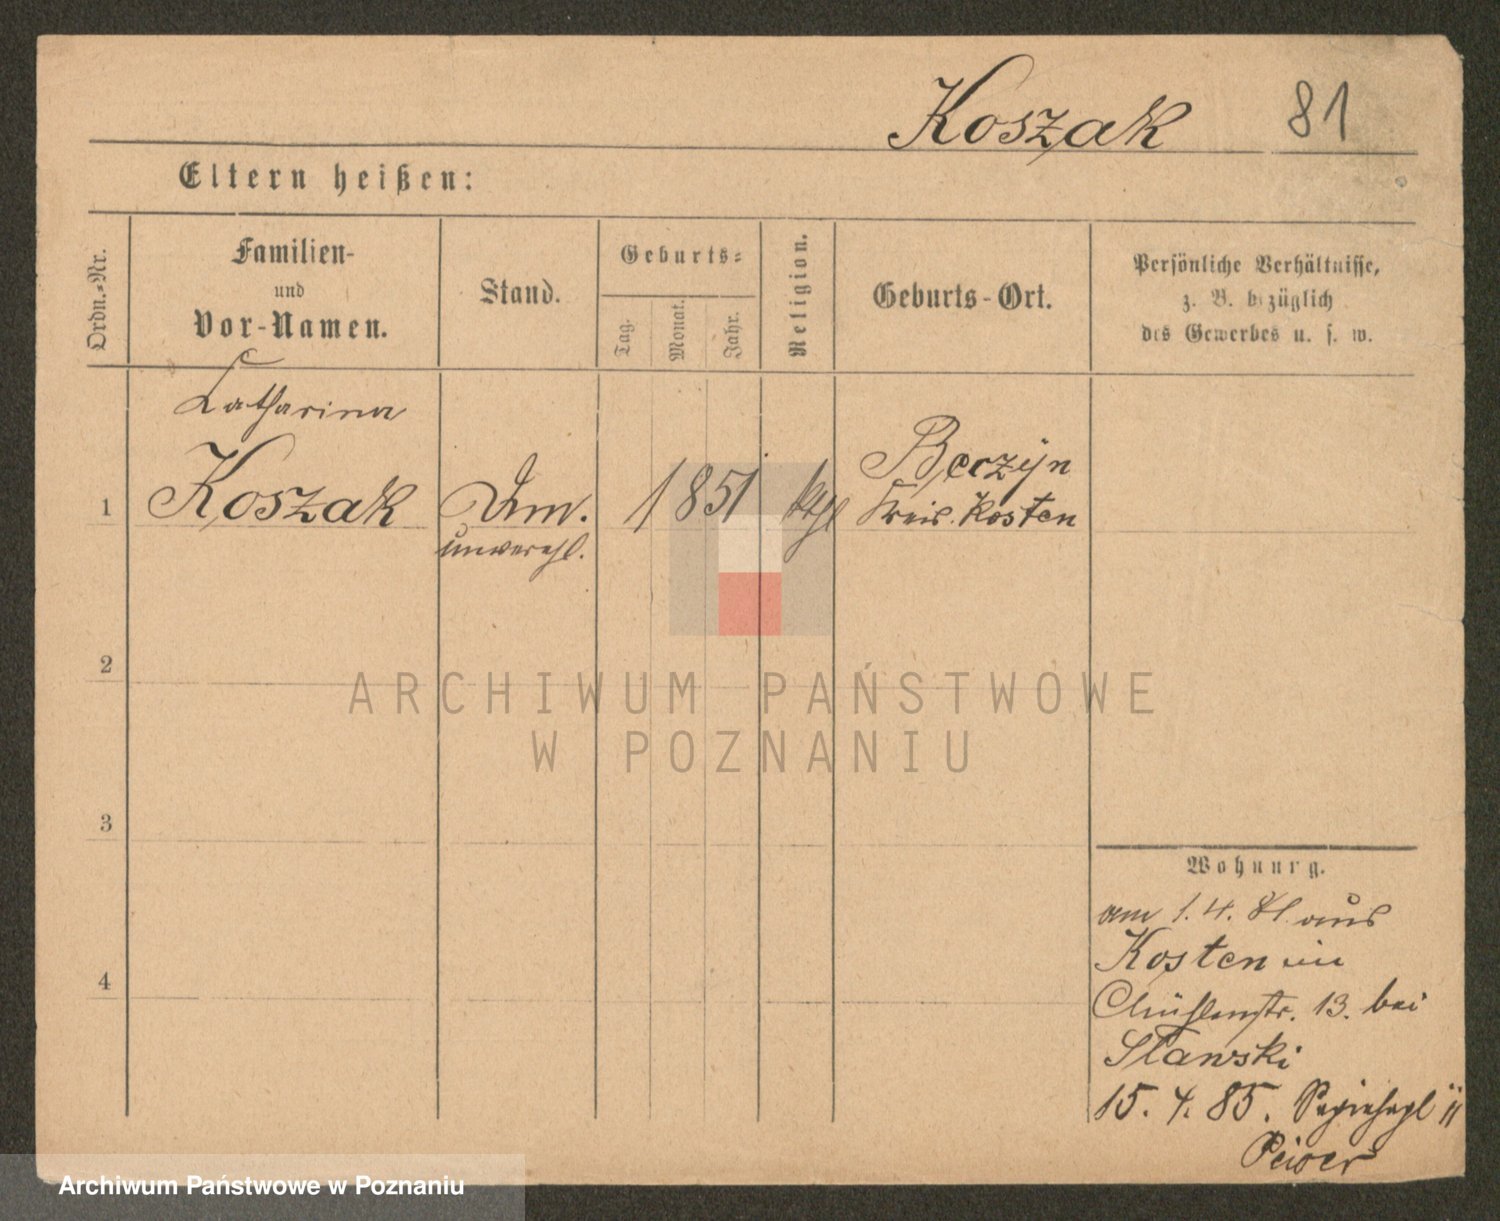 Koszak 81
Eltern heißen:
Ordn.-Nr.
Familien-
und
Vor-Namen.
Stand.
Geburts-
Tag.
Monat.
Jahr.
Religion.
Geburts-Ort.
Persönliche Verhältnisse,
z. B. bezüglich
des Gewerbes u. s. w.
Catharina
1 Koszak
unverehl.
1851
ktl
Kreis Kosten
2
ARCHIWUM PAŃSTWOWE
W POZNANIU
3
4
Wohnung.
am 1. 4. 81 aus
Kosten in
Mühlenstr. 13. bei
Slawski
15. 4. 85.
Archiwum Państwowe w Poznaniu